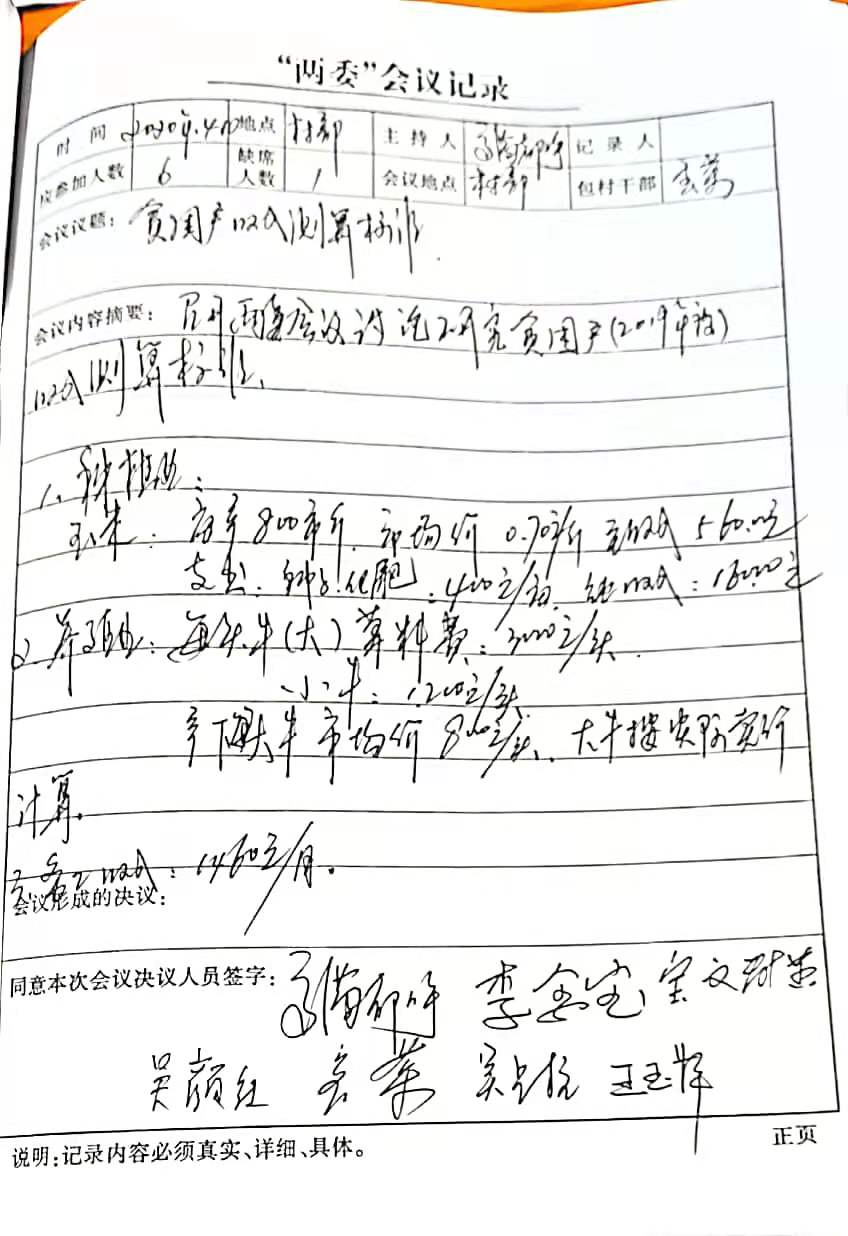 “两委”会议记录
时间 2020年.4月 地点 村部 主持人 记录人
应参加人数 6 缺席人数 1 会议地点 村部 包村干部
会议议题: 贫困户收入测算标准.
会议内容摘要: 召开两委会议讨论研究贫困户(2019年
收入测算标准、
1、种植业:
玉米: 亩产800市斤. 市场价 0.70/斤 560.00元
支出: 种子.化肥:400元/亩. 纯收入:160.00元
2 养殖业: 每头牛(大)算料费:3000元/头.
小牛:1200元/头
产下 大牛市场价 800元/头、大牛按实际卖价
计算.
收入:1460元/月.
会议形成的决议:
同意本次会议决议人员签字: 李金宝
吴颜红 王玉辉
说明:记录内容必须真实、详细、具体。
正页